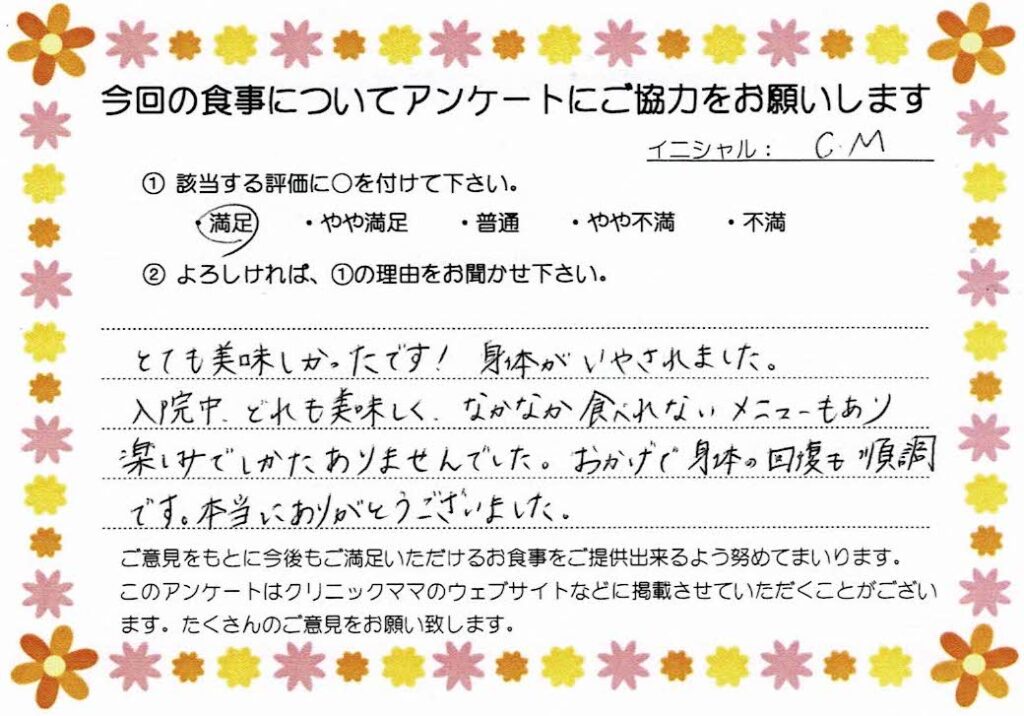 今回の食事についてアンケートにご協力をお願いします
イニシャル： C.M
① 該当する評価に○を付けて下さい。
・満足 ・やや満足 ・普通 ・やや不満 ・不満
② よろしければ、①の理由をお聞かせ下さい。
とても美味しかったです! 身体がいやされました。
入院中、どれも美味しく、なかなか食べれないメニューもあり
楽しみでしかたありませんでした。おかげで身体の回復も順調
です。本当にありがとうございました。
ご意見をもとに今後もご満足いただけるお食事をご提供出来るよう努めてまいります。
このアンケートはクリニックママのウェブサイトなどに掲載させていただくことがござい
ます。たくさんのご意見をお願い致します。